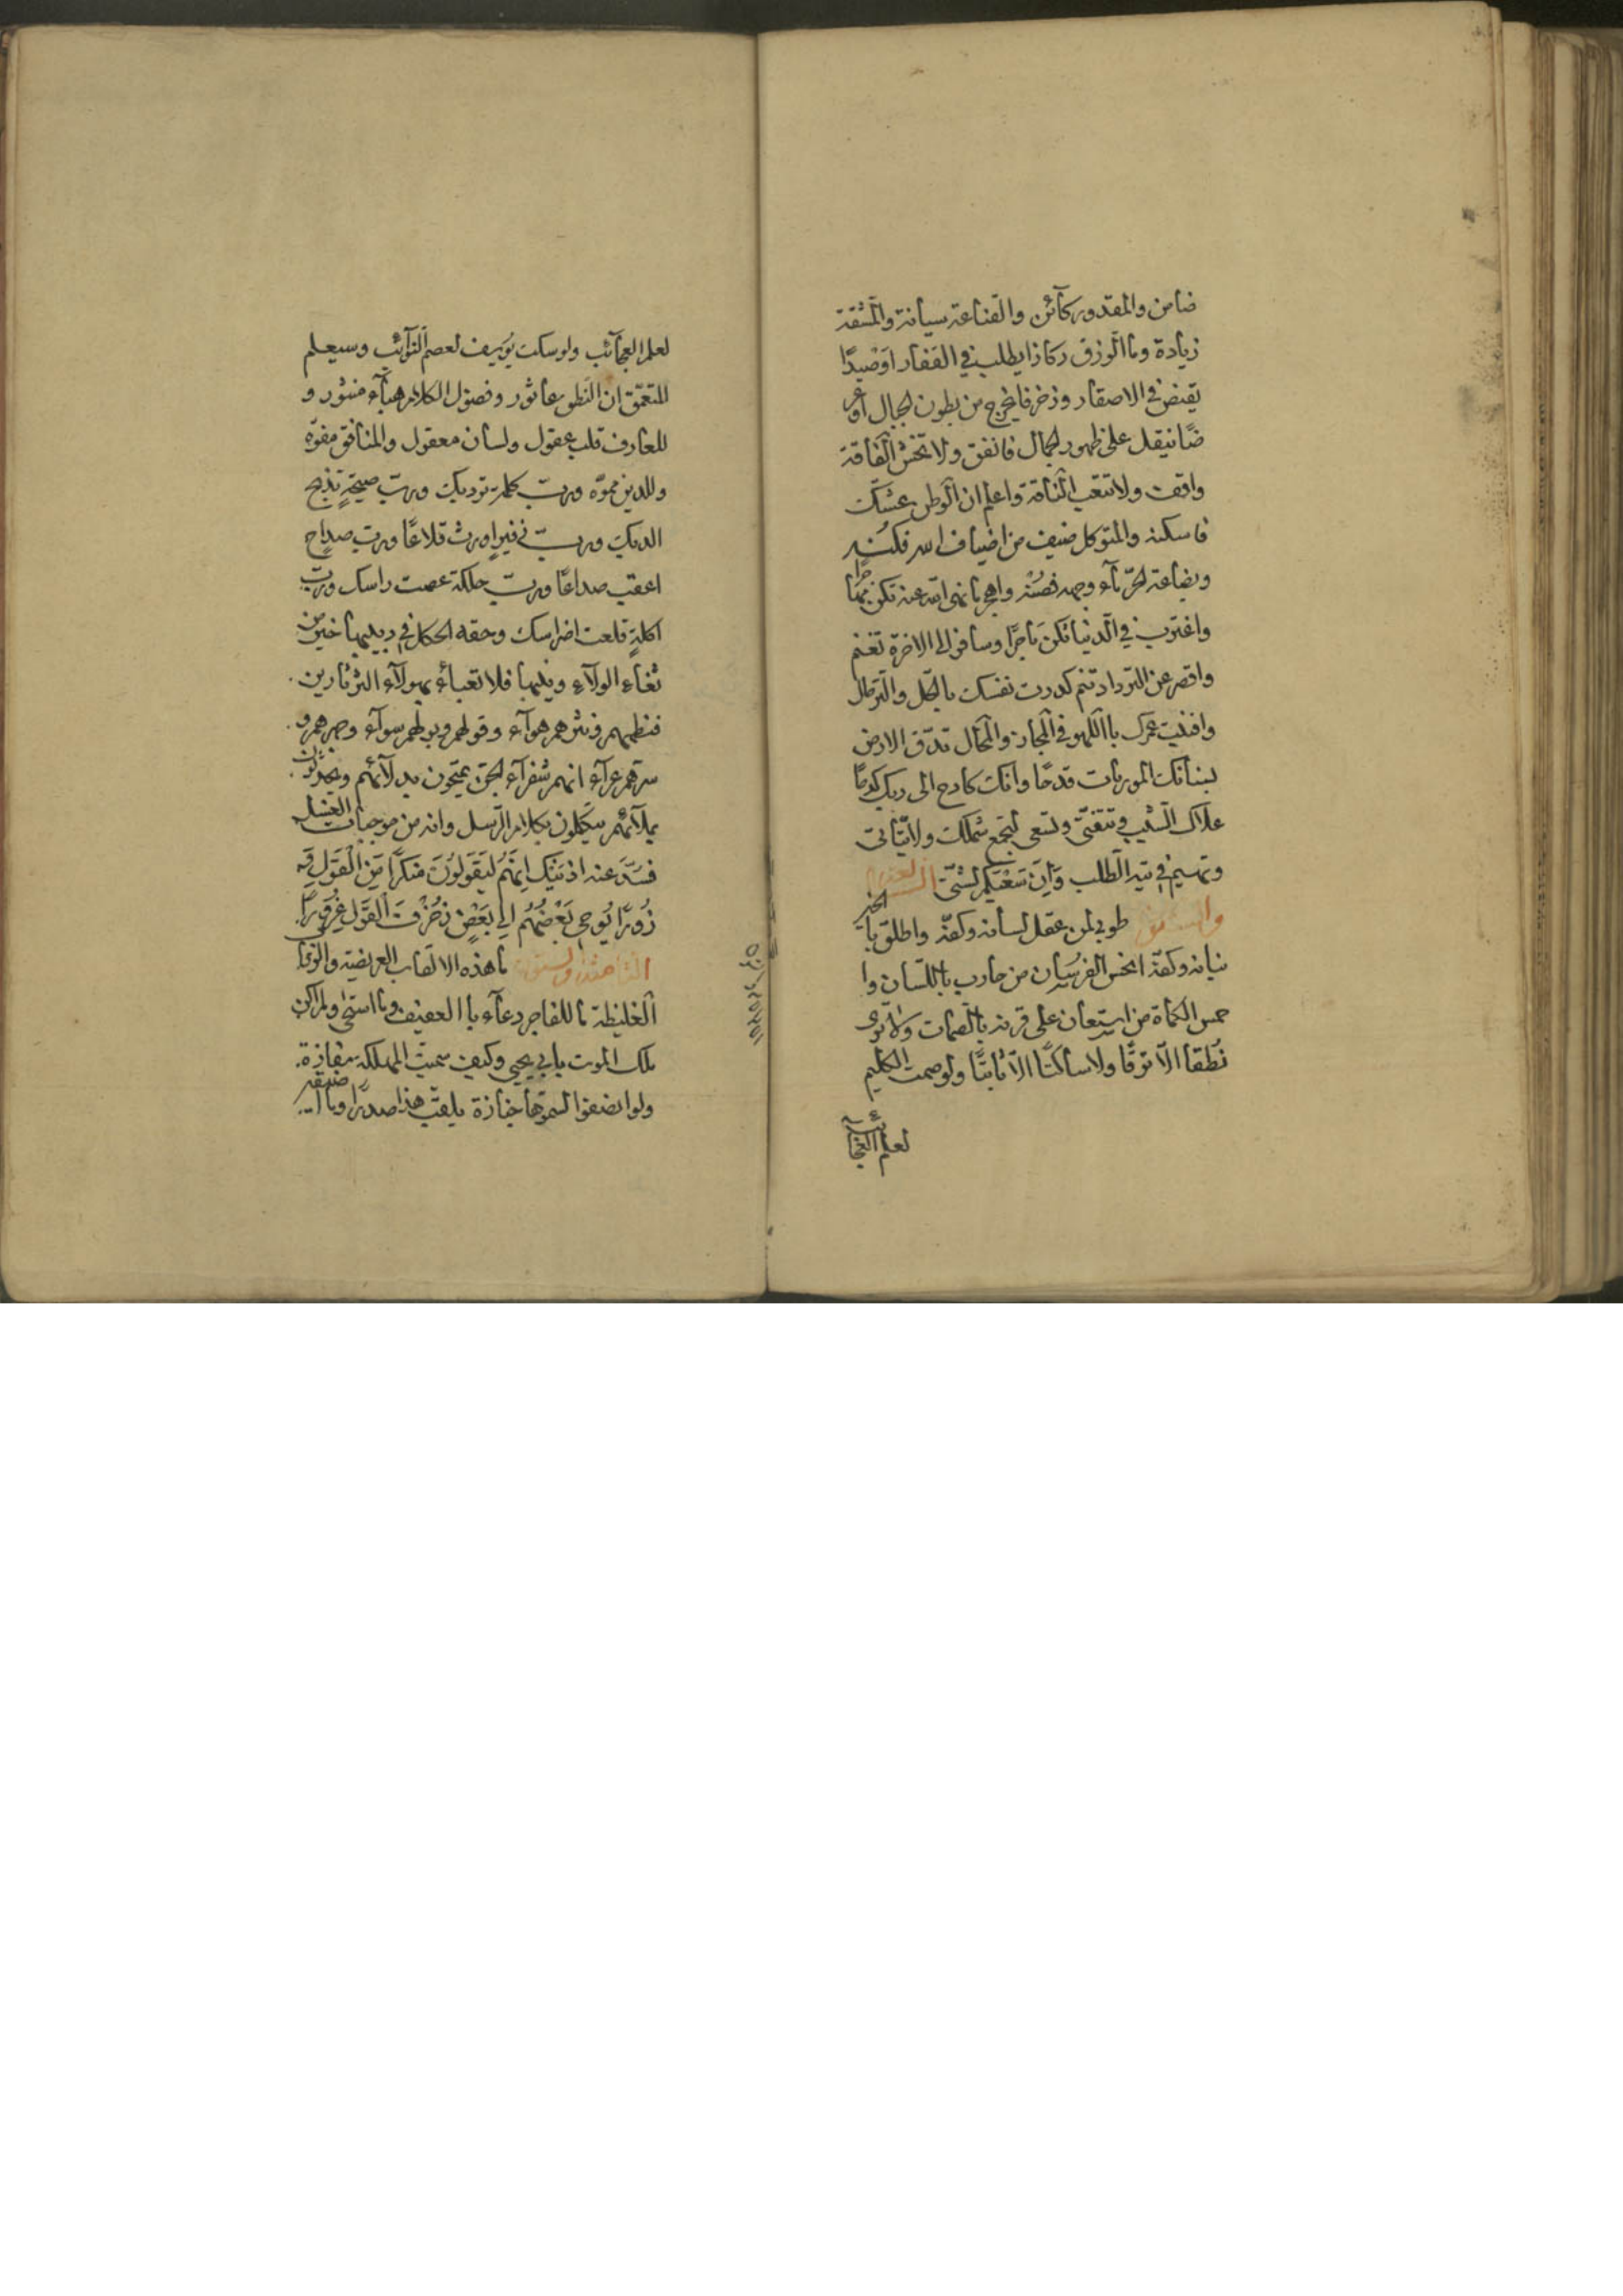 ضامن والمقدور كآئن والقناعة سيانة والمشقة
زيادة وما الرزق ركازا يطلب في القفار اوصيدًا
يقنص في الاصقار وزخرفا يخرج من بطون الجبال او عر
ضًا ينقل على ظهور الجمال فانفق ولا تخش الفاقة
واقف ولا تتعب الناقة واعلم ان الوطن عشك
فاسكنه والمتوكل ضيف من اضياف الله فكنه
وبضاعة الحر مآء وجهه فصنه واهجر ما نهى الله عنه تكن مهاجرًا
واغترب في الدنيا تكن تاجرًا وسافر الى الاخرة تغنم
واقصر عن الترداد تنم كدرت نفسك بالحل والترحال
وافنيت عمرك باللهو في المجاز والمحال تدق الارض
لبنانك الموريات قدحًا وانك كادح الى ربك كدحًا
علاك الشيب وتتفتى وتسعى لتجمع شملك ولا يتاتى
وتهيم في تيه الطلب وَاِنّ سَعْيَكم لشتّى
طوبى لمن عقل لسانه وكفّه واطلق بالخير
بنانه وكفّه اخس الفرسان من حارب باللسان وا
حمس الكماة من استعان على قرنه بالصمات ولا ترى
نُطقا الا توقًا ولا ساكتًا الا ثابتًا ولو صمت الكليم
لعلم العجآئب
لعلم العجآئب ولو سكت يوسف لعصم النوآئب وسيعلم
المتعمّق ان النطق عاثور وفضول الكلام هبآء منثور و
للعارف قلب عقول ولسان معقول والمنافق مفوّه
وللدين مموّه وربّ كلمة توديك وربّ صيحةٍ تذبح
الديك وربّ زفيرٍ اورث قلاعًا وربّ صداح
اعقب صداعًا وربّ حلكة عصت راسك وربّ
اكلةٍ قلعت اضراسك وحقه الحكل في دبيبها خير من
ثغاء الولآء وفيلها فلا تعبأ بهولآء الثرثارين
فنظمهم ونثرهم هوآء وقولهم وبولهم سوآء وجهرهم و
سرهم عرآء انهم شفرآء الجن يمتحون بدلآئهم ويحدثون
بملآئهم يتكلون بكلام الرسل وانه من موجبات الغسل
فسُدّ عنه اذنيك اِنَّهُمْ لَيَقُولُونَ مُنكَرًا مِنَ الْقَوْلِ وَ
زُورًا يُوحي بَعْضُهُم الى بَعْضٍ زُخْرُفَ الْقَوْلِ غُرُورًا
الثامنة والستون ما هذه الالقاب العريضة والدعاوى
الغليظة ما للفاجر دعآء بالعفيف وما استحى ولم اكن
ملك الموت بابي يحيى وكيف سميت المهلكة بمفازة
ولو انصفوا لسموها جنازة يلقب هذا صدرًا وما